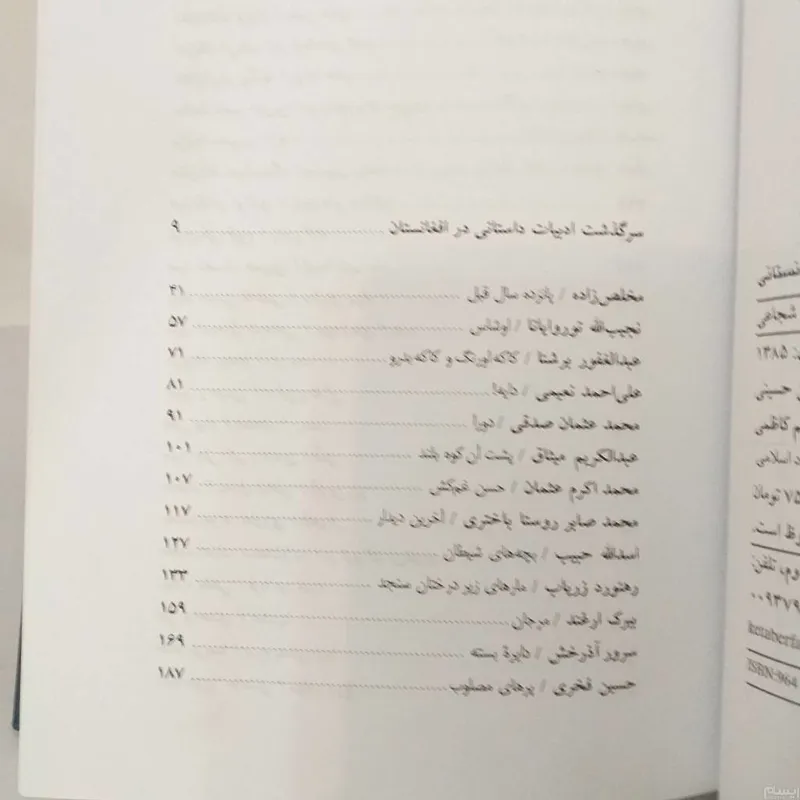 سرگذشت ادبیات داستانی در افغانستان ۹
مخلص‌زاده / پانزده سال قبل ۴۱
نجیب‌الله توروایانا / اوشاس ۵۷
عبدالغفور برشنا / کاکه اورنگ و کاکه بدرو ۷۱
علی‌احمد نعیمی / دایه! ۸۱
محمد عثمان صدقی / دورا ۹۱
عبدالکریم میثاق / پشت آن کوه بلند ۱۰۱
محمد اکرم عثمان / حسن غم‌کش ۱۰۷
محمد صابر روستا باختری / آخرین دیدار ۱۱۷
اسدالله حبیب / بچه‌های شیطان ۱۲۷
رهنورد زریاب / مارهای زیر درختان سنجد ۱۳۳
ببرک ارغند / مرجان ۱۵۹
سرور آذرخش / دایرهٔ بسته ۱۶۹
حسین فخری / پرهای مصلوب ۱۸۷
شجاعی
۱۳۸۵
حسینی
کاظمی
اسلامی
۷۵ تومان
است.
تلفن:
۰۰۹۳۷۹
ketaberfa
ISBN:964
ایسام